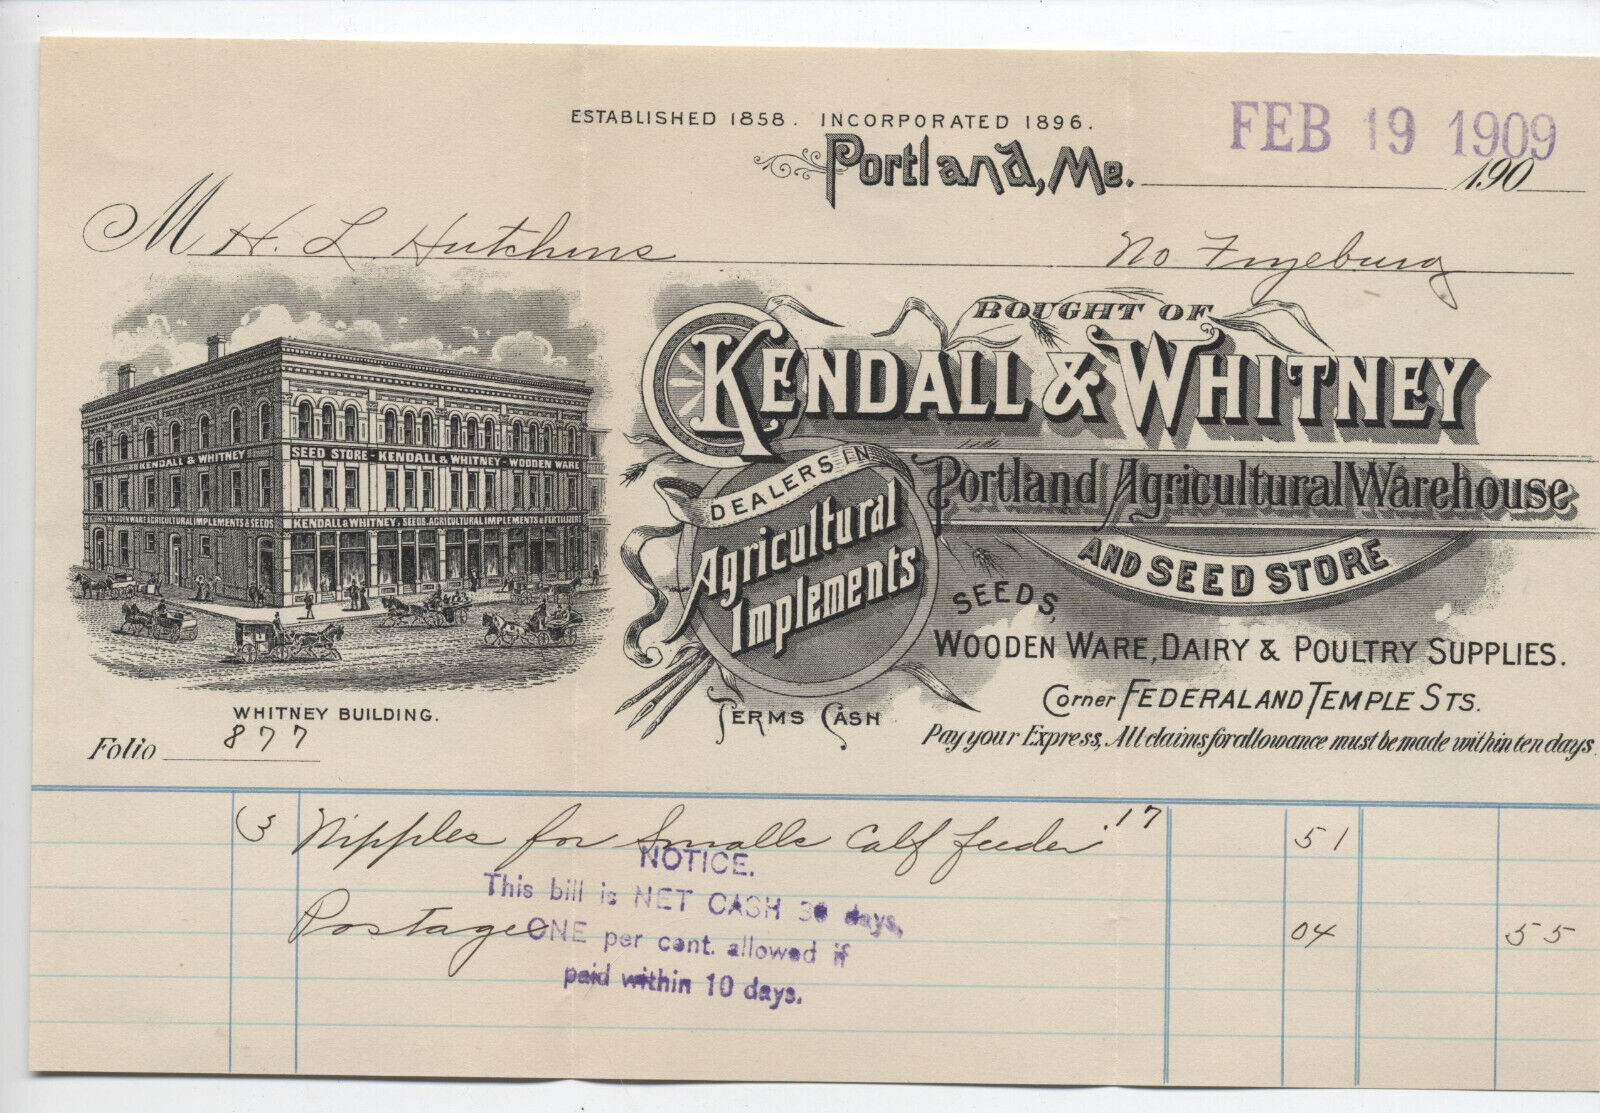 ESTABLISHED 1858. INCORPORATED 1896.
FEB 19 1909
Portland, Me. 190
M H. L. Hutchins No Fryeburg
BOUGHT OF
KENDALL & WHITNEY
Portland Agricultural Warehouse
AND SEED STORE
DEALERS IN
Agricultural
Implements
SEEDS,
WOODEN WARE, DAIRY & POULTRY SUPPLIES.
Corner FEDERAL AND TEMPLE STS.
TERMS CASH
Pay your Express, All claims for allowance must be made within ten days
KENDALL & WHITNEY
SEED STORE - KENDALL & WHITNEY - WOODEN WARE
WOODEN WARE AGRICULTURAL IMPLEMENTS & SEEDS
KENDALL & WHITNEY, SEEDS, AGRICULTURAL IMPLEMENTS & FERTILIZERS
WHITNEY BUILDING.
Folio 877
3 Nipples for Smalls Calf feeder 17 51
Postage 04 55
NOTICE.
This bill is NET CASH 30 days,
ONE per cent. allowed if
paid within 10 days.